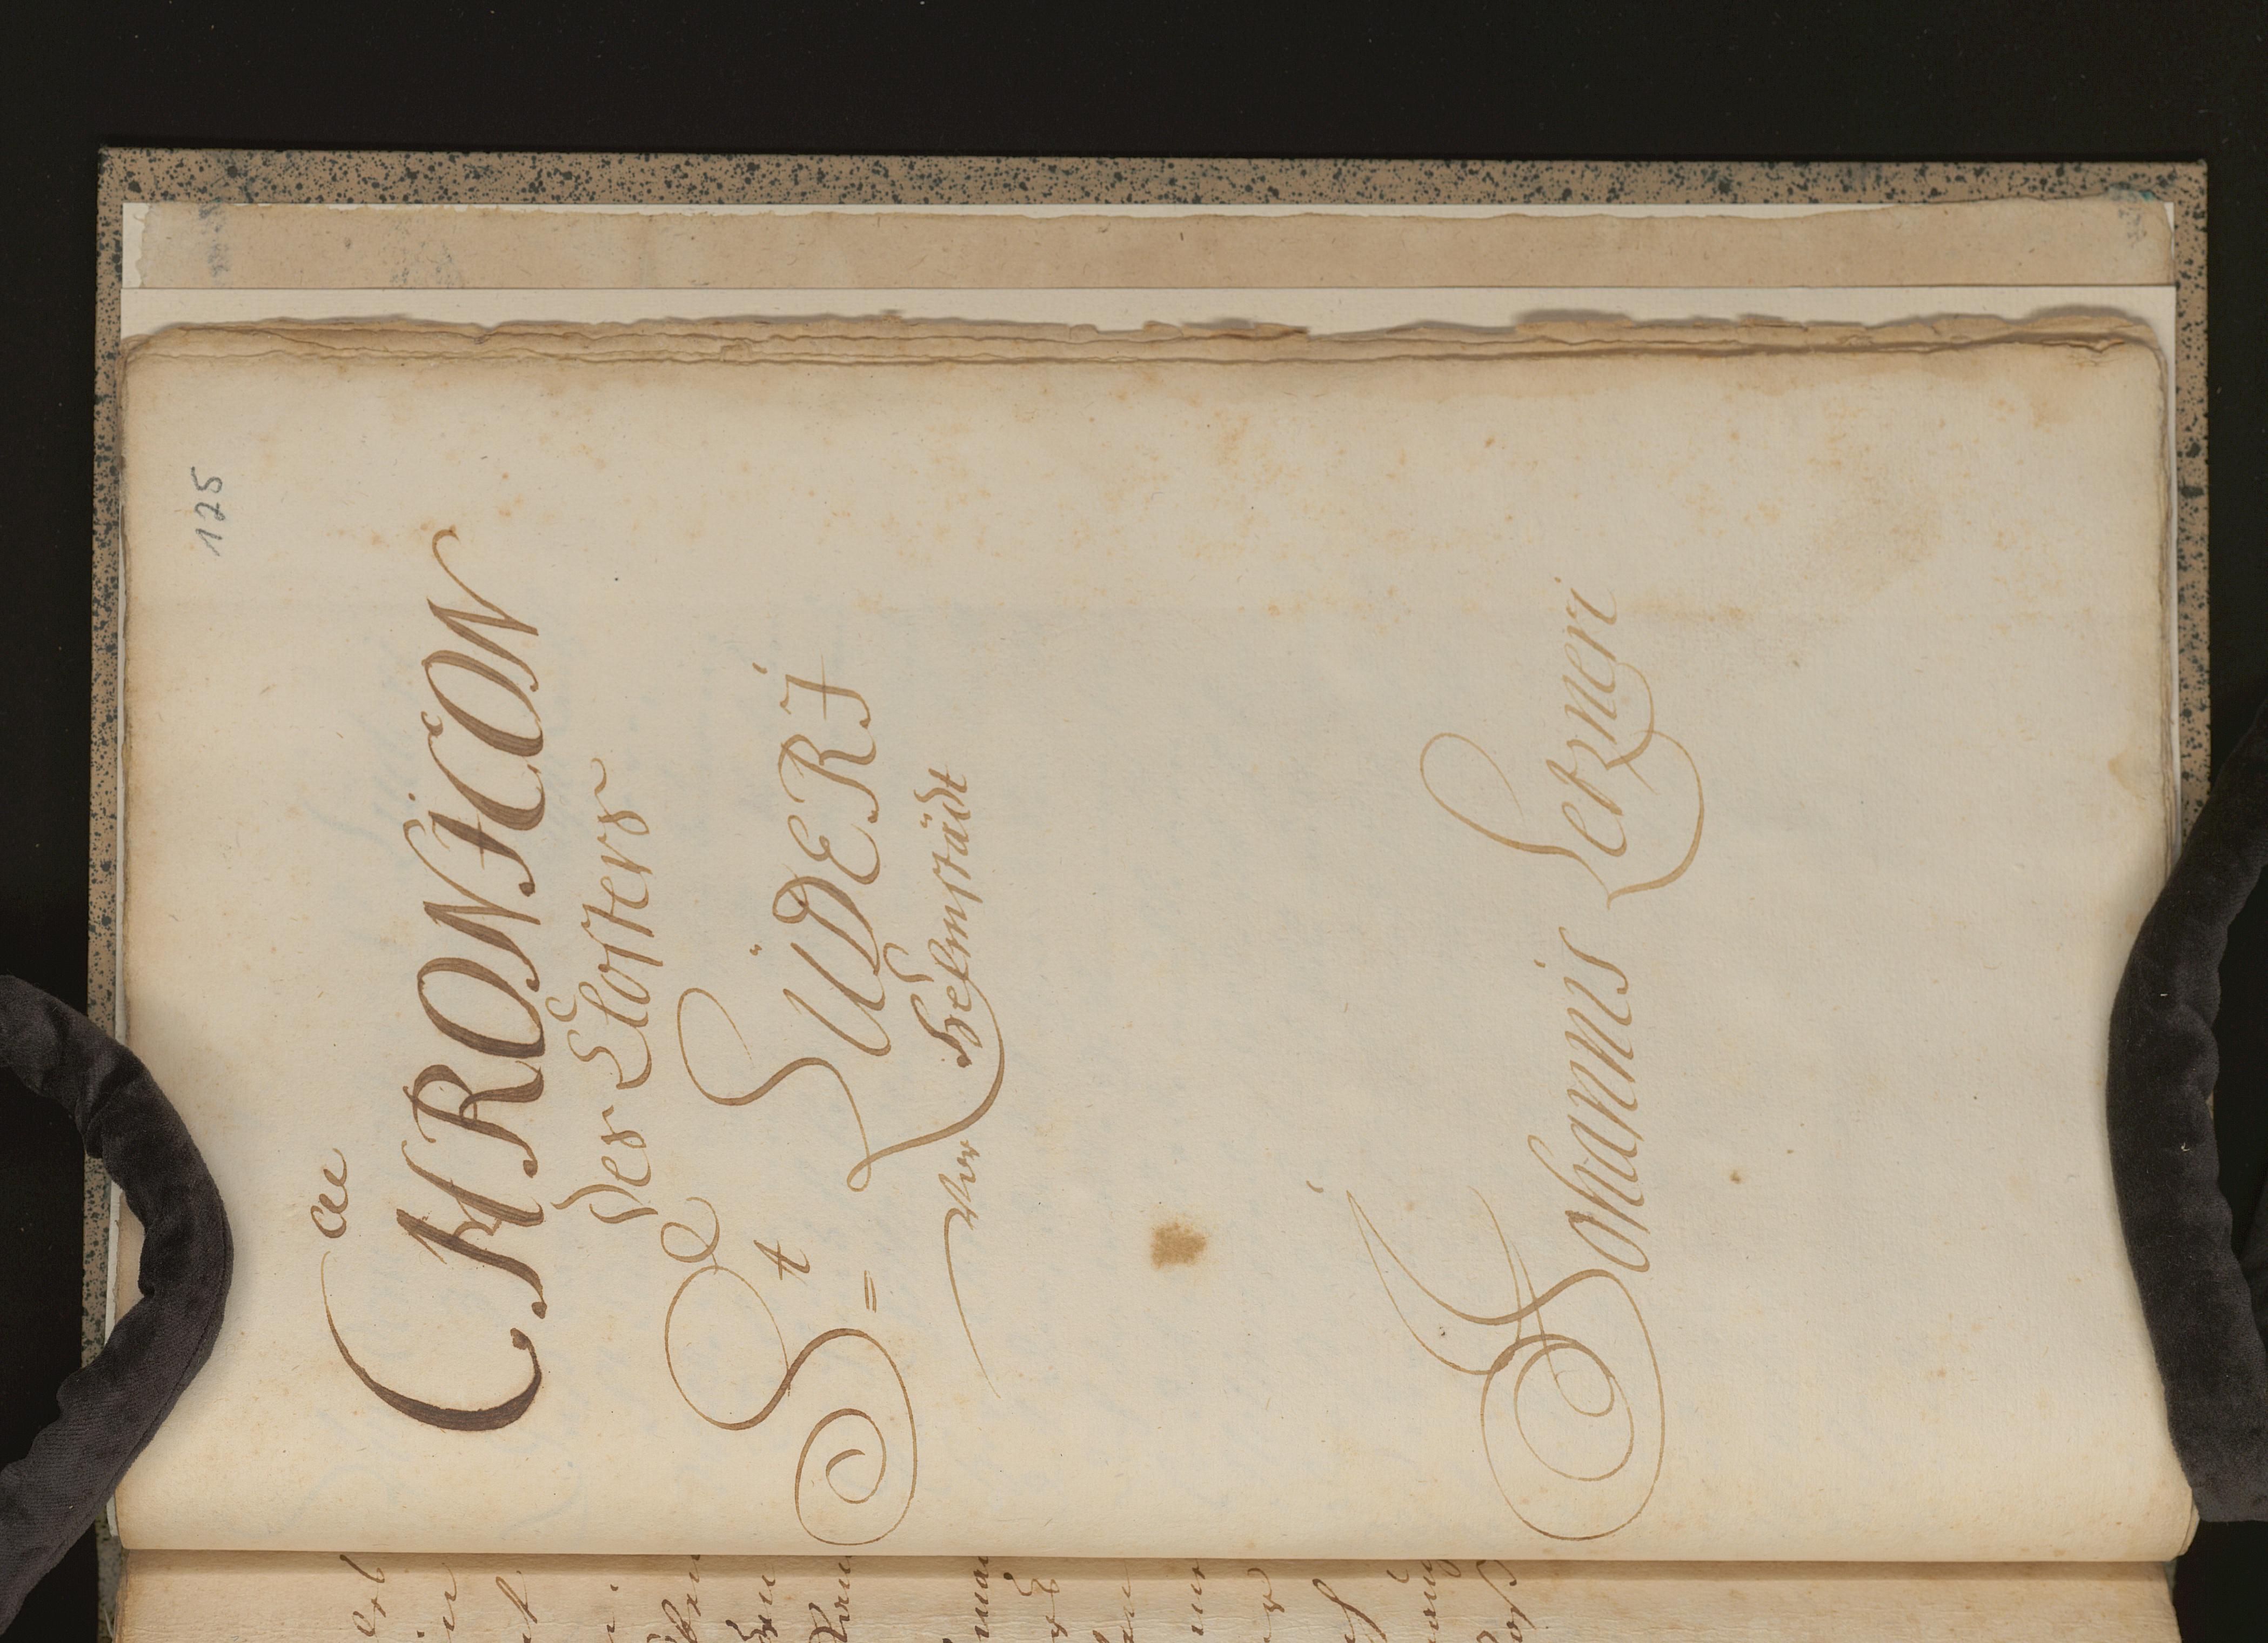 125
CHRONICON
Des Closters
St LÜDERI
Vor Helmstädt
Johannis Letzneri